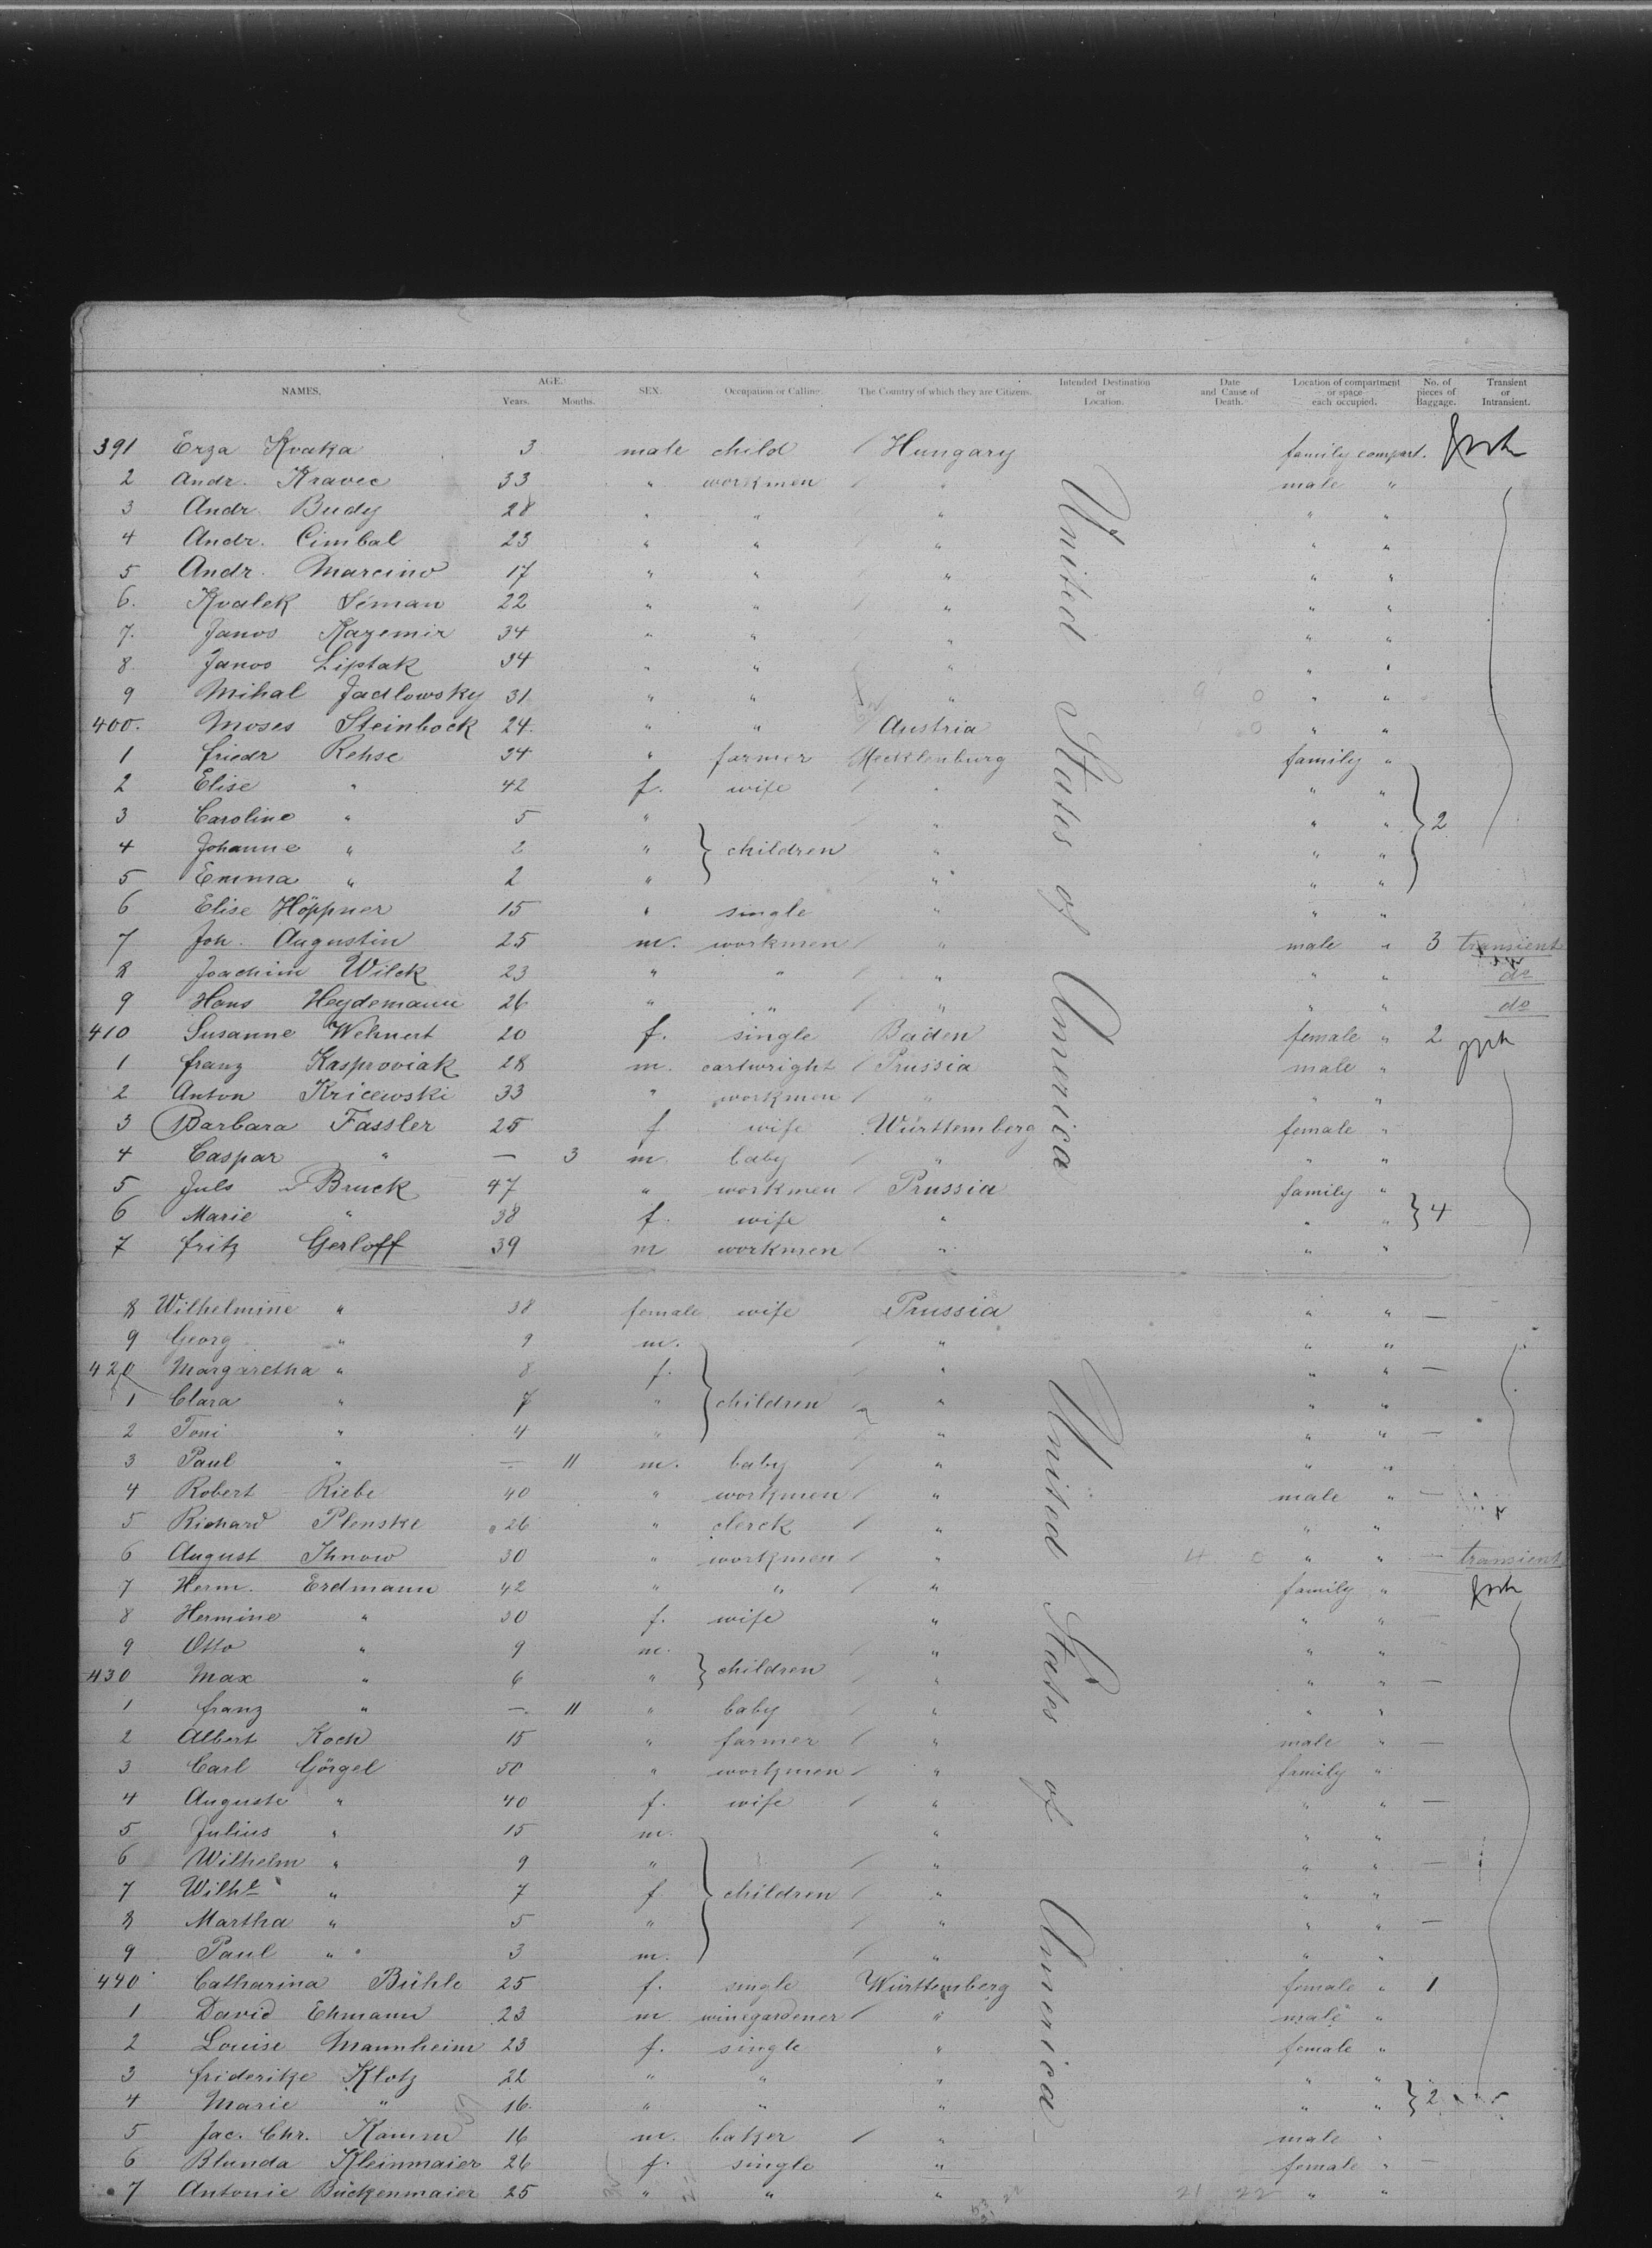 NAMES. AGE. Years. Months. SEX. Occupation or Calling. The Country of which they are Citizens. Intended Destination or Location. Date and Cause of Death. Location of compartment or space each occupied. No. of pieces of Baggage. Transient or Intransient.
391 Erza Kvaka 3 male child Hungary family compart.
2 Andr. Kravec 33 " workmen " male "
3 Andr. Budy 28 " " " " "
4 Andr. Cimbal 23 " " " " "
5 Andr. Marcino 17 " " " " "
6. Kvalek Séman 22 " " " " "
7. Janos Kazemir 34 " " " " "
8 Janos Liptak 34 " " " " "
9 Mihal Jadlowsky 31 " " " " "
400. Moses Steinbock 24 " " Austria " "
1 Friedr Rehse 34 " farmer Mecklenburg family "
2 Elise " 42 f. wife " " "
3 Caroline " 5 " " " " 2
4 Johanne " 2 " children " " "
5 Emma " 2 " " " "
6 Elise Höppner 15 " single " " "
7 Joh. Augustin 25 m. workmen " male " 3 transient
8 Joachim Wilck 23 " " " " " do
9 Hans Heydemann 26 " " " " " do
410 Susanne Wehnert 20 f. single Baden female " 2
1 Franz Kasproviak 28 m. cartwright Prussia male "
2 Anton Kricewski 33 " workmen " " "
3 Barbara Fassler 25 f wife Württemberg female "
4 Caspar " — 3 m. baby " " "
5 Juls Bruck 47 " workmen Prussia family "
6 Marie " 38 f. wife " " " 4
7 Fritz Gerloff 39 m workmen " " "
United States of America
8 Wilhelmine " 38 female wife Prussia " " —
9 Georg " 9 m. " " "
420 Margaretha " 8 f. " " " —
1 Clara " 7 " children " " "
2 Toni " 4 " " " " —
3 Paul " — 11 m. baby " " "
4 Robert Riebe 40 " workmen " male " —
5 Richard Plenske 26 " clerck " " "
6 August Ihnow 30 " workmen " " " — transient
7 Herm. Erdmann 42 " " " family "
8 Hermine " 30 f. wife " " " —
9 Otto " 9 m. " " "
430 Max " 6 " children " " " —
1 Franz " — 11 " baby " " "
2 Albert Koch 15 " farmer " male " —
3 Carl Görgel 50 " workmen " family "
4 Auguste " 40 f. wife " " " —
5 Julius " 15 m. " " "
6 Wilhelm " 9 " " " " —
7 Wilhe " 7 f children " " "
8 Martha " 5 " " " " —
9 Paul " 3 m. " " "
440 Catharina Bühle 25 f. single Württemberg female " 1
1 David Ehmann 23 m winegardener " male "
2 Louise Mannheim 23 f. single " female "
3 Friderike Klotz 22 " " " " "
4 Marie " 16 " " " " " 2
5 Jac. Chr. Kamm 16 m. baker " male "
6 Blunda Kleinmaier 26 f. single " female " —
7 Antonie Bückenmaier 25 " " " " "
United States of America